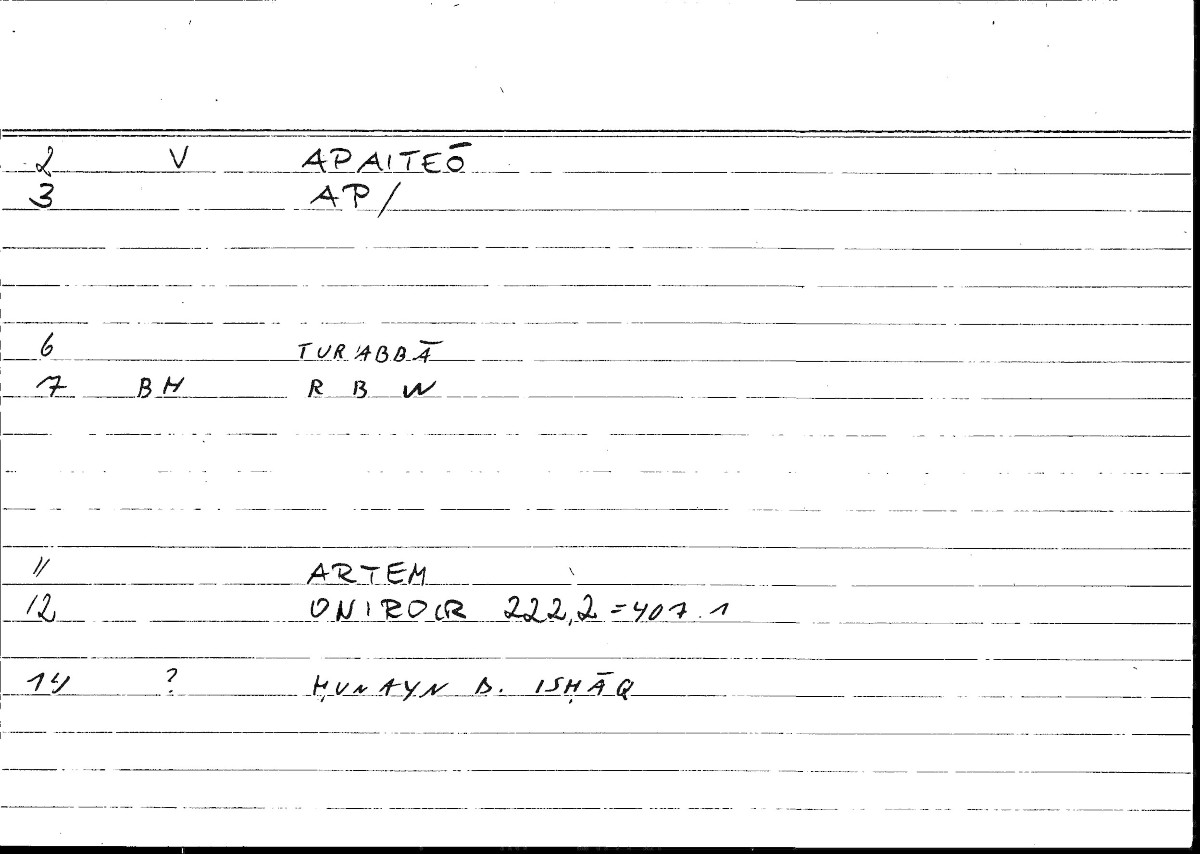 2 V APAITEŌ
3 AP/
6 TURʾABBĀ
7 BH R B W
11 ARTEM
12 ONIROCR 222,2 = 407.1
14 ? ḤUNAYN B. ISḤĀQ